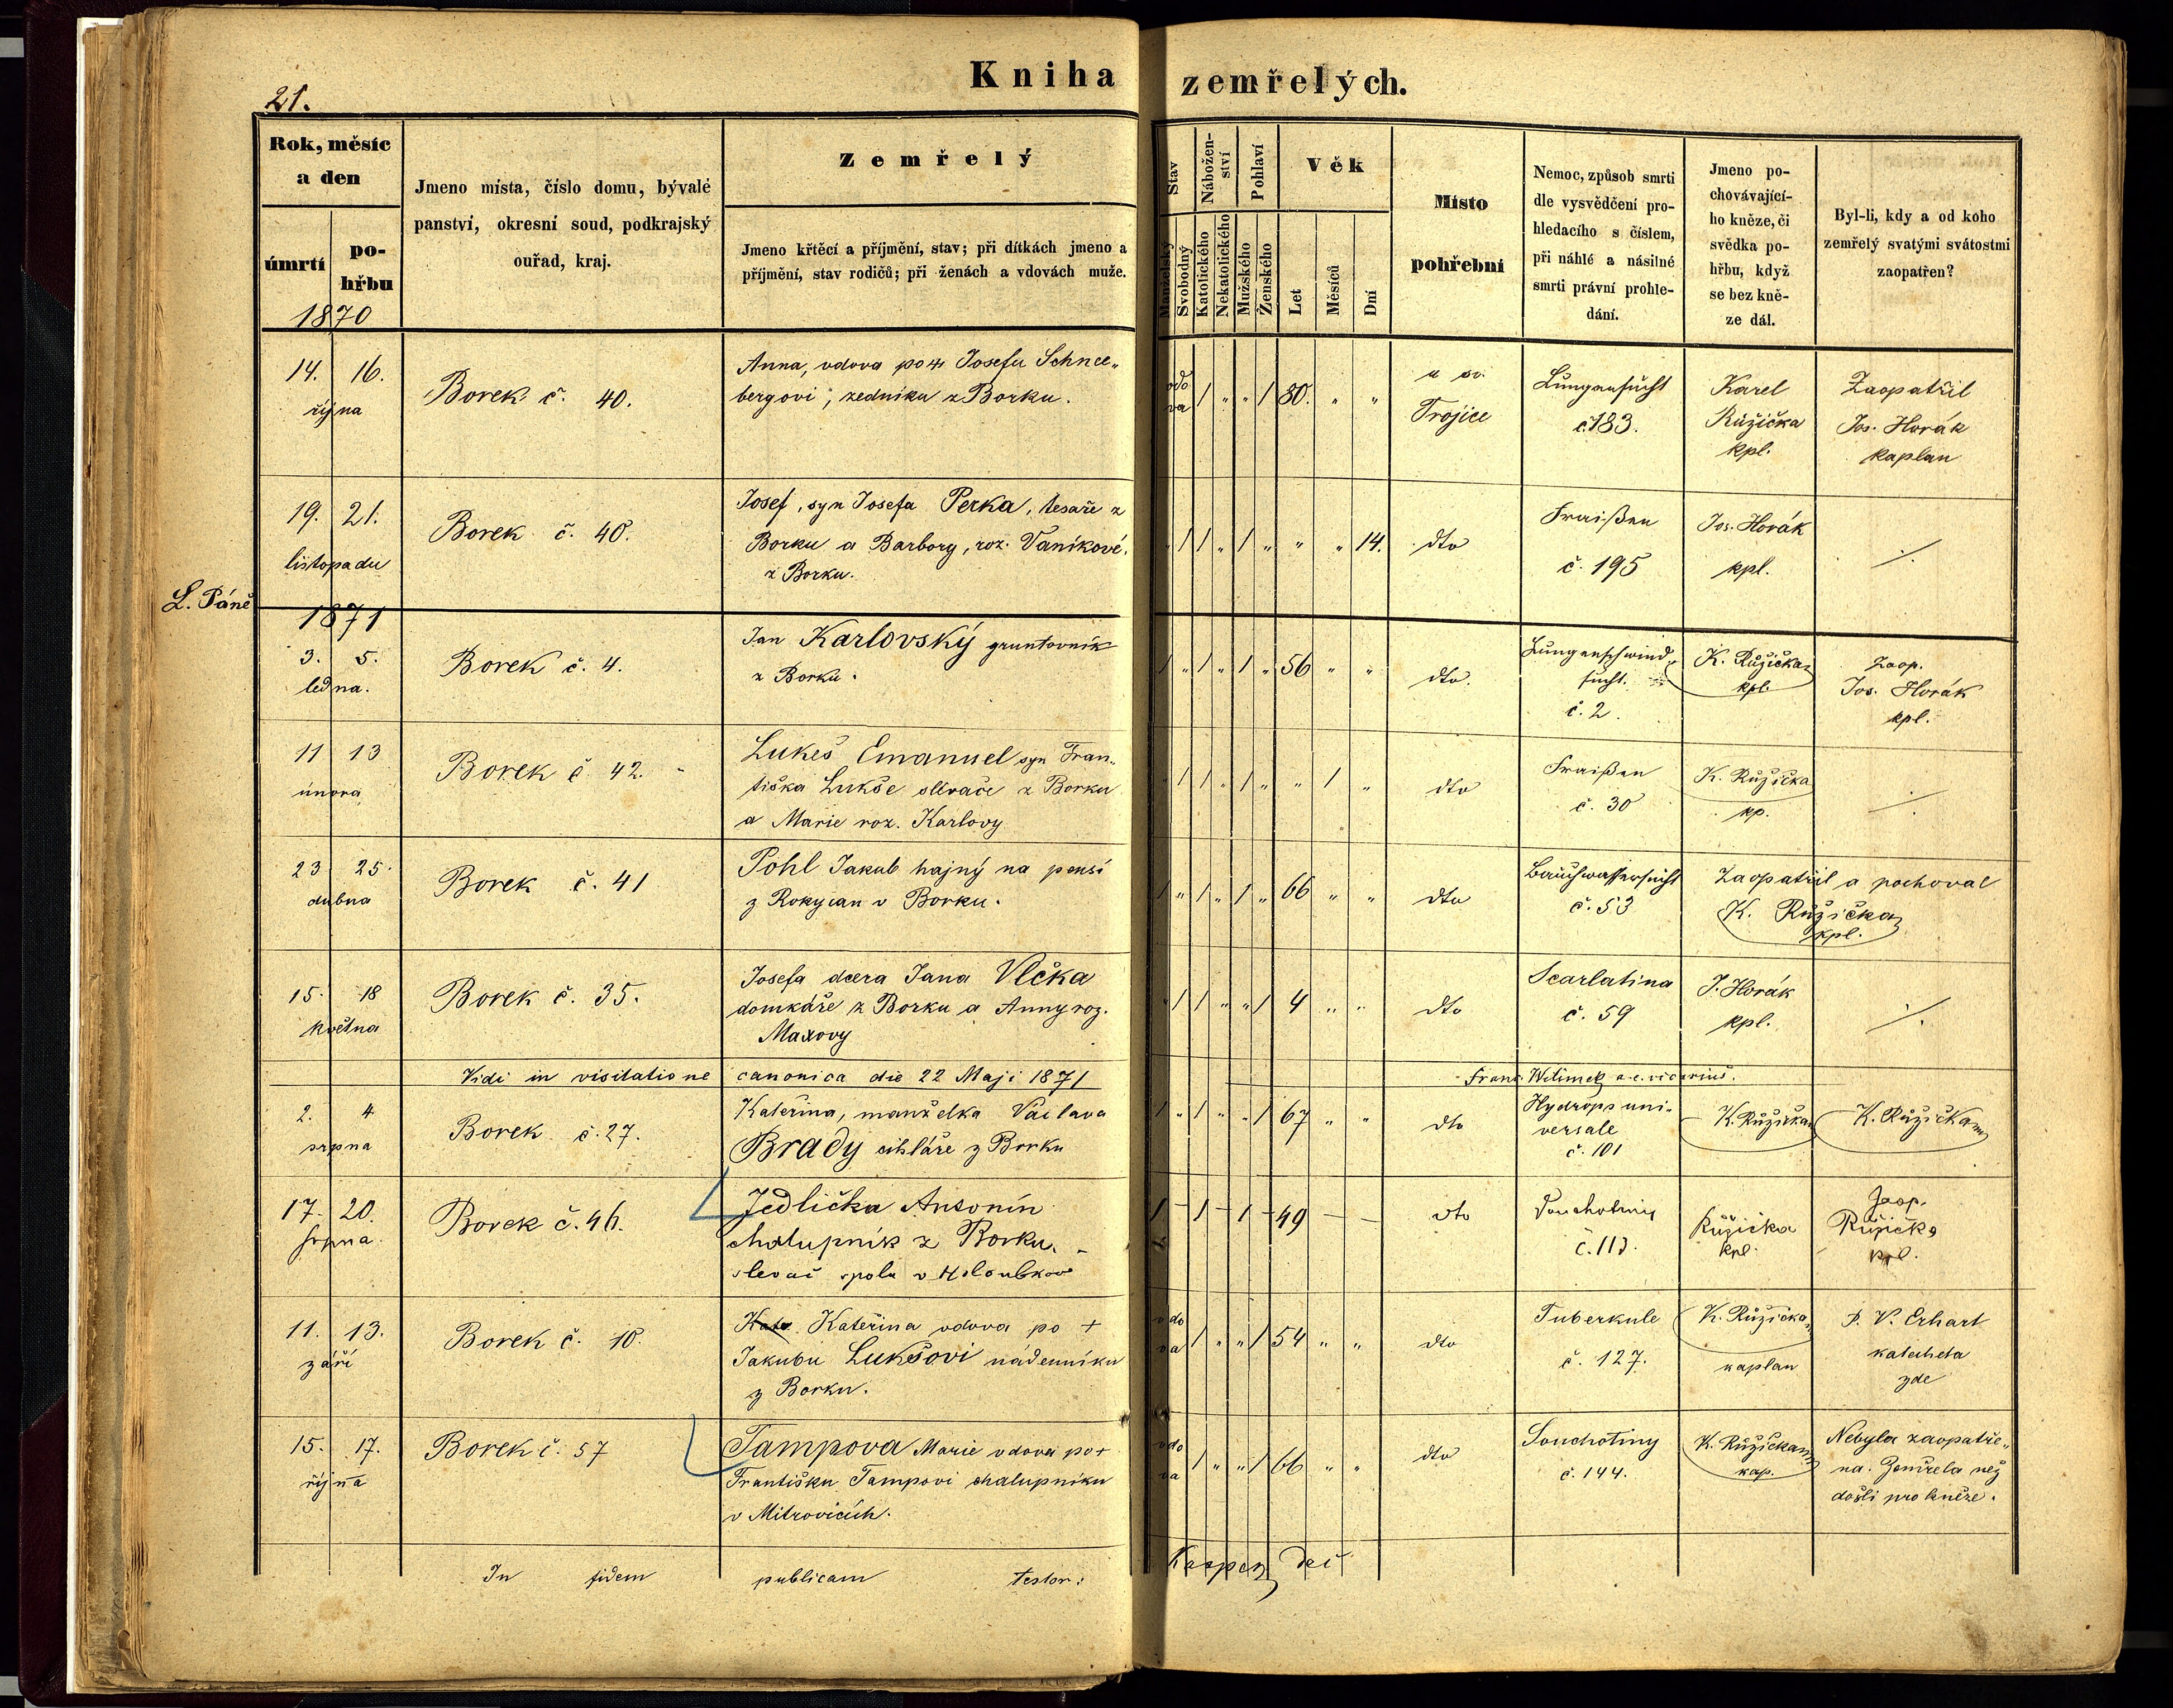 Kniha zemřelých.
21.
Rok, měsíc a den
úmrtí
pohřbu
1870
Jmeno místa, číslo domu, bývalé
panství, okresní soud, podkrajský
ouřad, kraj.
Zemřelý
Jmeno křtěcí a příjmění, stav; při dítkách jmeno a
příjmění, stav rodičů; při ženách a vdovách muže.
Stav
Manželský
Svobodný
Nábožen-
ství
Katolického
Nekatolického
Pohlaví
Mužského
Ženského
Věk
Let
Měsíců
Dní
Místo
pohřební
Nemoc, způsob smrti
dle vysvědčení pro-
hledacího s číslem,
při náhlé a násilné
smrti právní prohle-
dání.
Jmeno po-
chovávající-
ho kněze, či
svědka po-
hřbu, když
se bez kně-
ze dál.
Byl-li, kdy a od koho
zemřelý svatými svátostmi
zaopatřen?
14. 16.
října
Borek č. 40.
Anna, vdova po + Josefu Schnee„
bergovi, zedníku z Borku.
vdo
va
1 „ „ 1 80. „ „
u sv.
Trojice
Lungensucht
č. 183.
Karel
Růžička
kpl.
Zaopatřil
Jos. Horák
kaplan
19. 21.
listopadu
Borek č. 40.
Josef, syn Josefa Perka, tesaře z
Borku a Barbory, roz. Vaníkové.
z Borku.
„ 1 1 „ 1 „ „ „ 14.
dto
Fraißen
č. 195
Jos. Horák
kpl.
./.
L. Páně
1871
3. 5.
ledna.
Borek č. 4.
Jan Karlovský gruntovník
z Borku.
1 „ 1 „ 1 „ 56 „ „
dto.
Lungenschwind„
sucht.
č. 2.
K. Růžička
kpl.
Zaop.
Jos. Horák
kpl.
11 13
února
Borek č. 42.
Lukeš Emanuel syn Fran„
tiška Lukše slévače z Borku
a Marie roz. Karlovy
„ 1 1 „ 1 „ „ 1 „
dto
Fraißen
č. 30
K. Růžička
kp.
./.
23 25.
dubna
Borek č. 41
Pohl Jakub hajný na pensi
z Rokycan v Borku.
1 „ 1 „ 1 „ 66 „ „
dto
Bauchwassersucht
č. 53
Zaopatřil a pochoval
K. Růžička
kpl.
15. 18
května
Borek č. 35.
Josefa dcera Jana Vlčka
domkáře z Borku a Anny roz.
Maxovy
„ 1 1 „ „ 1 4 „ „
dto
Scarlatina
č. 59
J. Horák
kpl.
./.
Vidi in visitatione canonica die 22 Maji 1871
Franc. Witimek a. e. vicarius.
2. 4
srpna
Borek č. 27.
Kateřina, manželka Václava
Brady cihláře z Borku
1 „ 1 „ „ 1 67 „ „
dto
Hydrops uni-
versale
č. 101
K. Růžička
K. Růžička
17. 20.
srpna.
Borek č. 46.
Jedlička Antonín
chalupník z Borku. –
slevač spolu v Holoubkově
1 – 1 – 1 – 49 – –
dto
Souchotiny
č. 113.
Růžička
kpl.
Zaop.
Růžička
kpl.
11. 13.
září
Borek č. 10.
Kateřina vdova po +
Jakubu Lukšovi nádenníku
z Borku.
vdo
va
1 „ „ 1 54 „ „
dto
Tuberkule
č. 127.
K. Růžička
kaplan
P. V. Erhart
katecheta
zde
15. 17.
října
Borek č. 57
Tampova Marie vdova po +
Františku Tampovi chalupníku
v Mitrovicích.
vdo
va
1 „ „ 1 66 „ „
dto
Souchotiny
č. 144.
K. Růžička
kap.
Nebyla zaopatře„
na. Zemřela než
došli pro kněze.
In fidem publicam testor: